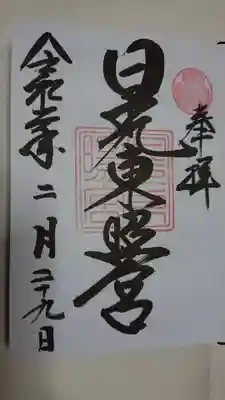 奉拝
日光東照宮
令和六年二月二十九日